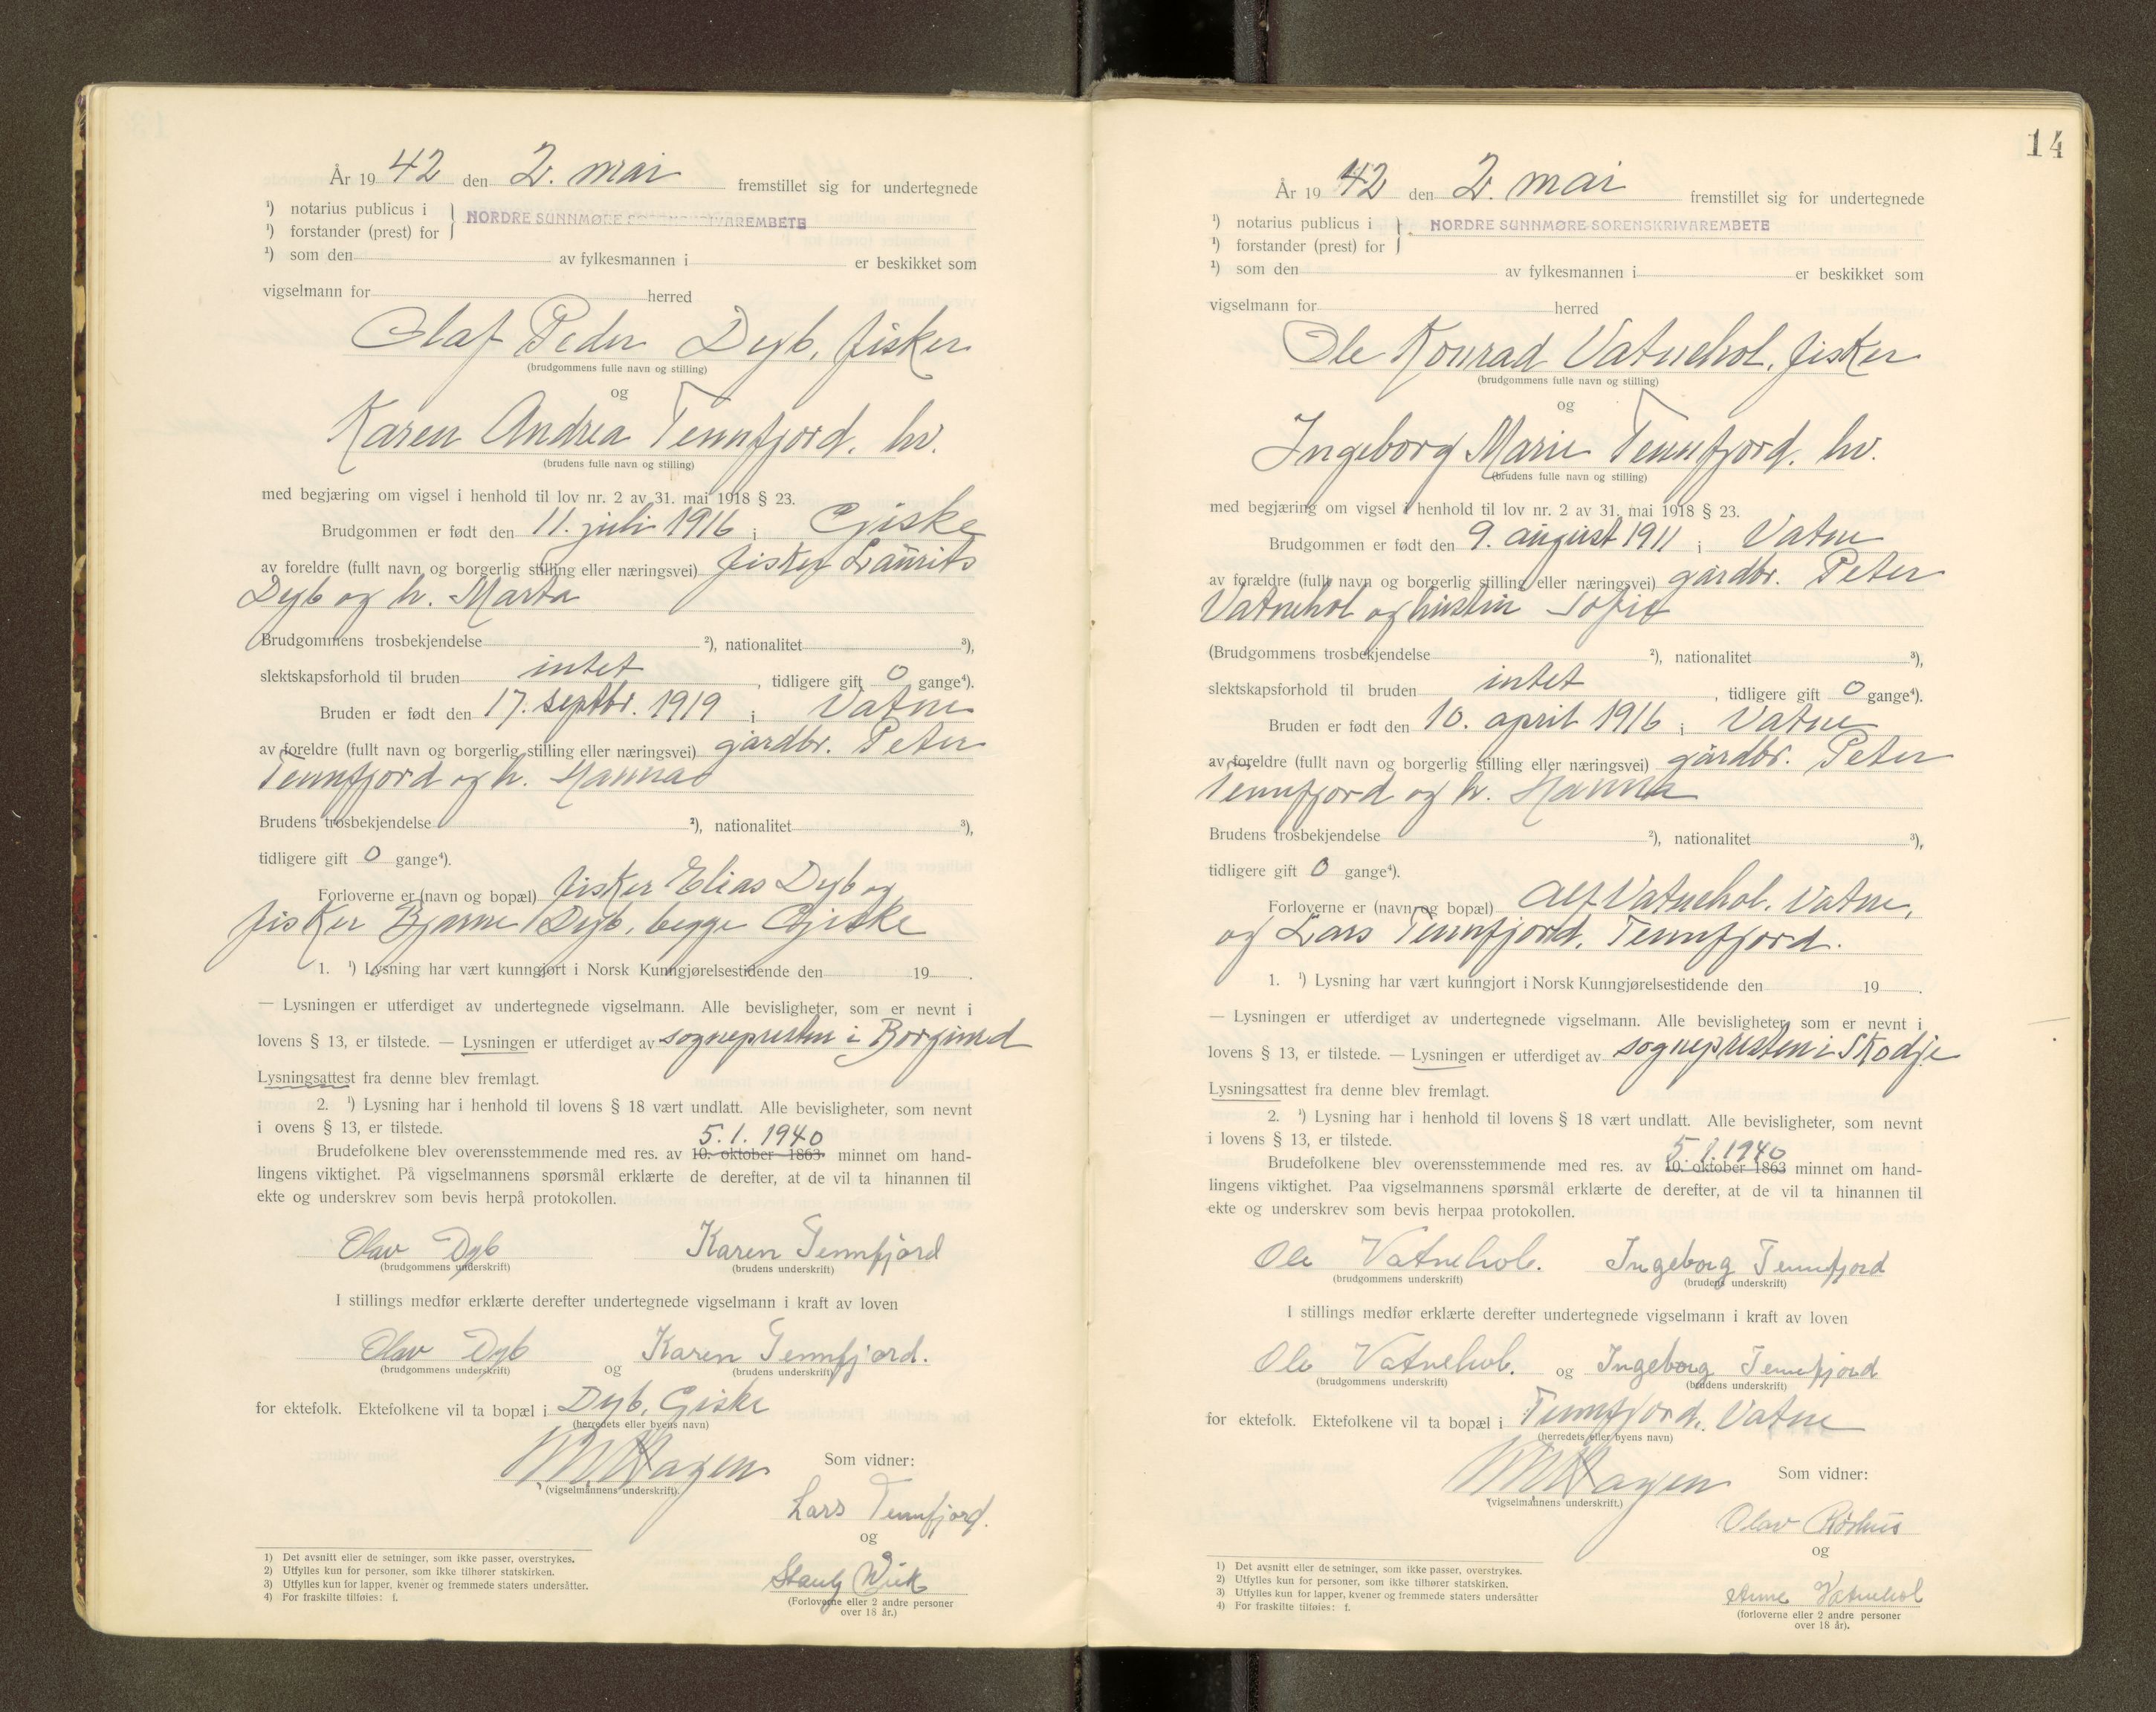 År 1942 den 2. mai fremstillet sig for undertegnede
¹) notarius publicus i
NORDRE SUNNMØRE SORENSKRIVAREMBETE
¹) forstander (prest) for
¹) som den av fylkesmannen i er beskikket som
vigselmann for herred
Olaf Peder Dyb, fisker
(brudgommens fulle navn og stilling)
og
Karen Andrea Tennfjord, hv.
(brudens fulle navn og stilling)
med begjæring om vigsel i henhold til lov nr. 2 av 31. mai 1918 § 23.
Brudgommen er født den 11. juli 1916 i Giske
av foreldre (fullt navn og borgerlig stilling eller næringsvei) fisker Laurits
Dyb og h. Marta
Brudgommens trosbekjendelse ²), nationalitet ³),
slektskapsforhold til bruden intet, tidligere gift 0 gange⁴).
Bruden er født den 17. septbr. 1919 i Vatne
av foreldre (fullt navn og borgerlig stilling eller næringsvei) gårdbr. Peter
Tennfjord og h. Hanna
Brudens trosbekjendelse ²), nationalitet ³),
tidligere gift 0 gange⁴).
Forloverne er (navn og bopæl) fisker Elias Dyb og
fisker Bjarne Dyb, begge Giske
1. ¹) Lysning har vært kunngjort i Norsk Kunngjørelsestidende den 19 .
— Lysningen er utferdiget av undertegnede vigselmann. Alle bevisligheter, som er nevnt i
lovens § 13, er tilstede. — Lysningen er utferdiget av sognepresten i Borgund
Lysningsattest fra denne blev fremlagt.
2. ¹) Lysning har i henhold til lovens § 18 vært undlatt. Alle bevisligheter, som nevnt
i ovens § 13, er tilstede.
5. 1. 1940
Brudefolkene blev overensstemmende med res. av 10. oktober 1863 minnet om hand-
lingens viktighet. På vigselmannens spørsmål erklærte de derefter, at de vil ta hinannen til
ekte og underskrev som bevis herpå protokollen.
Olav Dyb Karen Tennfjord
(brudgommens underskrift) (brudens underskrift)
I stillings medfør erklærte derefter undertegnede vigselmann i kraft av loven
Olav Dyb og Karen Tennfjord.
(brudgommens underskrift) (brudens underskrift)
for ektefolk. Ektefolkene vil ta bopæl i Dyb, Giske
(herredets eller byens navn)
Hagen
(vigselmannens underskrift).
Som vidner:
Lars Tennfjord.
og
Wiik
(Forloverne eller 2 andre personer
over 18 år.)
1) Det avsnitt eller de setninger, som ikke passer, overstrykes.
2) Utfylles kun for personer, som ikke tilhører statskirken.
3) Utfylles kun for lapper, kvener og fremmede staters undersåtter.
4) For fraskilte tilføies: f.
14
År 1942 den 2. mai fremstillet sig for undertegnede
¹) notarius publicus i
NORDRE SUNNMØRE SORENSKRIVAREMBETE
¹) forstander (prest) for
¹) som den av fylkesmannen i er beskikket som
vigselmann for herred
Ole Konrad Vatnehol, fisker
(brudgommens fulle navn og stilling)
og
Ingeborg Marie Tennfjord, hv.
(brudens fulle navn og stilling)
med begjæring om vigsel i henhold til lov nr. 2 av 31. mai 1918 § 23.
Brudgommen er født den 9. august 1911 i Vatne
av forældre (fullt navn og borgerlig stilling eller næringsvei) gårdbr. Peter
Vatnehol og hustru Sofie
(Brudgommens trosbekjendelse ²), nationalitet ³),
slektskapsforhold til bruden intet, tidligere gift 0 gange⁴).
Bruden er født den 10. april 1916 i Vatne
av foreldre (fullt navn og borgerlig stilling eller næringsvei) gårdbr. Peter
Tennfjord og h. Hanna
Brudens trosbekjendelse ²), nationalitet ³),
tidligere gift 0 gange⁴).
Forloverne er (navn og bopæl) Alf Vatnehol, Vatne,
og Lars Tennfjord, Tennfjord.
1. ¹) Lysning har vært kunngjort i Norsk Kunngjørelsestidende den 19 .
— Lysningen er utferdiget av undertegnede vigselmann. Alle bevisligheter, som er nevnt i
lovens § 13, er tilstede. — Lysningen er utferdiget av sognepresten i Skodje
Lysningsattest fra denne blev fremlagt.
2. ¹) Lysning har i henhold til lovens § 18 vært undlatt. Alle bevisligheter, som nevnt
i lovens § 13, er tilstede.
5. 1. 1940
Brudefolkene blev overensstemmende med res. av 10. oktober 1863 minnet om hand-
lingens viktighet. Paa vigselmannens spørsmål erklærte de derefter, at de vil ta hinannen til
ekte og underskrev som bevis herpaa protokollen.
Ole Vatnehol. Ingeborg Tennfjord
(brudgommens underskrift) (brudens underskrift)
I stillings medfør erklærte derefter undertegnede vigselmann i kraft av loven
Ole Vatnehol. og Ingeborg Tennfjord
(brudgommens underskrift) (brudens underskrift)
for ektefolk. Ektefolkene vil ta bopæl i Tennfjord, Vatne
(herredets eller byens navn)
Hagen
(vigselmannens underskrift.)
Som vidner:
Olav
og
Vatnehol
(forloverne eller 2 andre personer
over 18 år).
1) Det avsnitt eller de setninger, som ikke passer, overstrykes.
2) Utfylles kun for personer, som ikke tilhører statskirken.
3) Utfylles kun for lapper, kvener og fremmede staters undersåtter
4) For fraskilte tilføies: f.